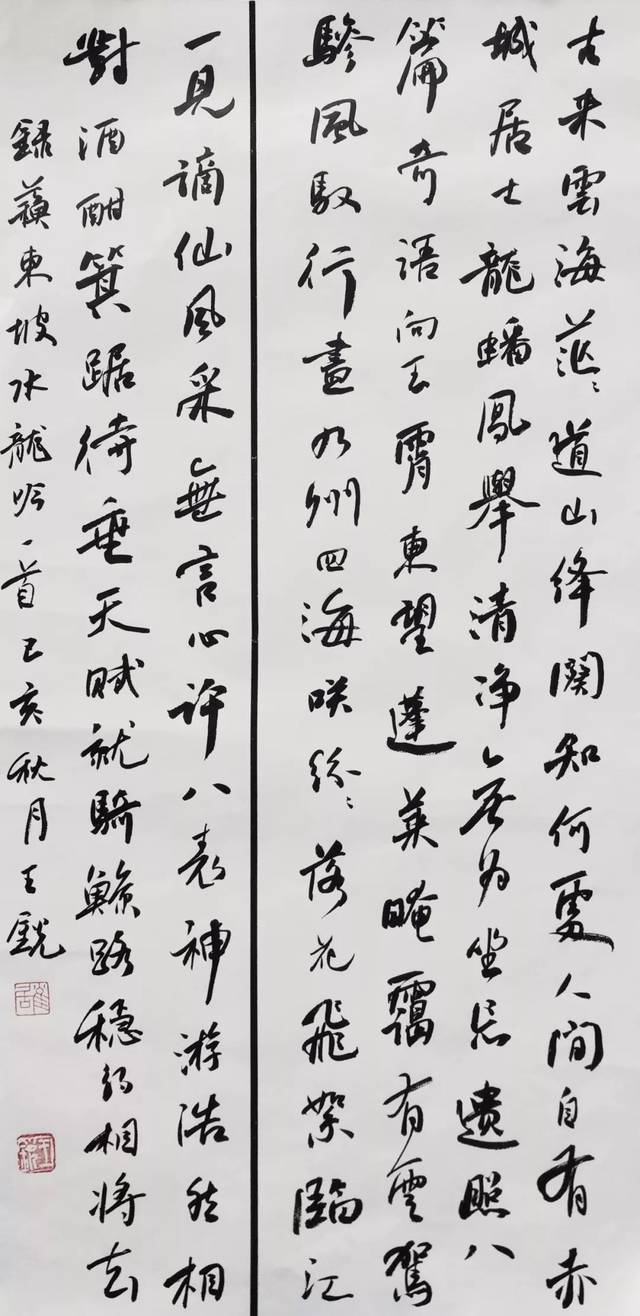 古来雲海茫〻道山绛闕知何處人間自有赤
城居士龍蟠鳳舉清净無为坐忘遗照八
篇奇語向玉霄東望蓬莱晻靄有雲駕
驂風馭行盡九州四海咲纷〻落花飛絮臨江
一見谪仙風采無言心许八表神游浩然相
對酒酣箕踞待垂天赋就騎鯨路稳约相将去
録蘇東坡水龍吟一首己亥秋月王銳